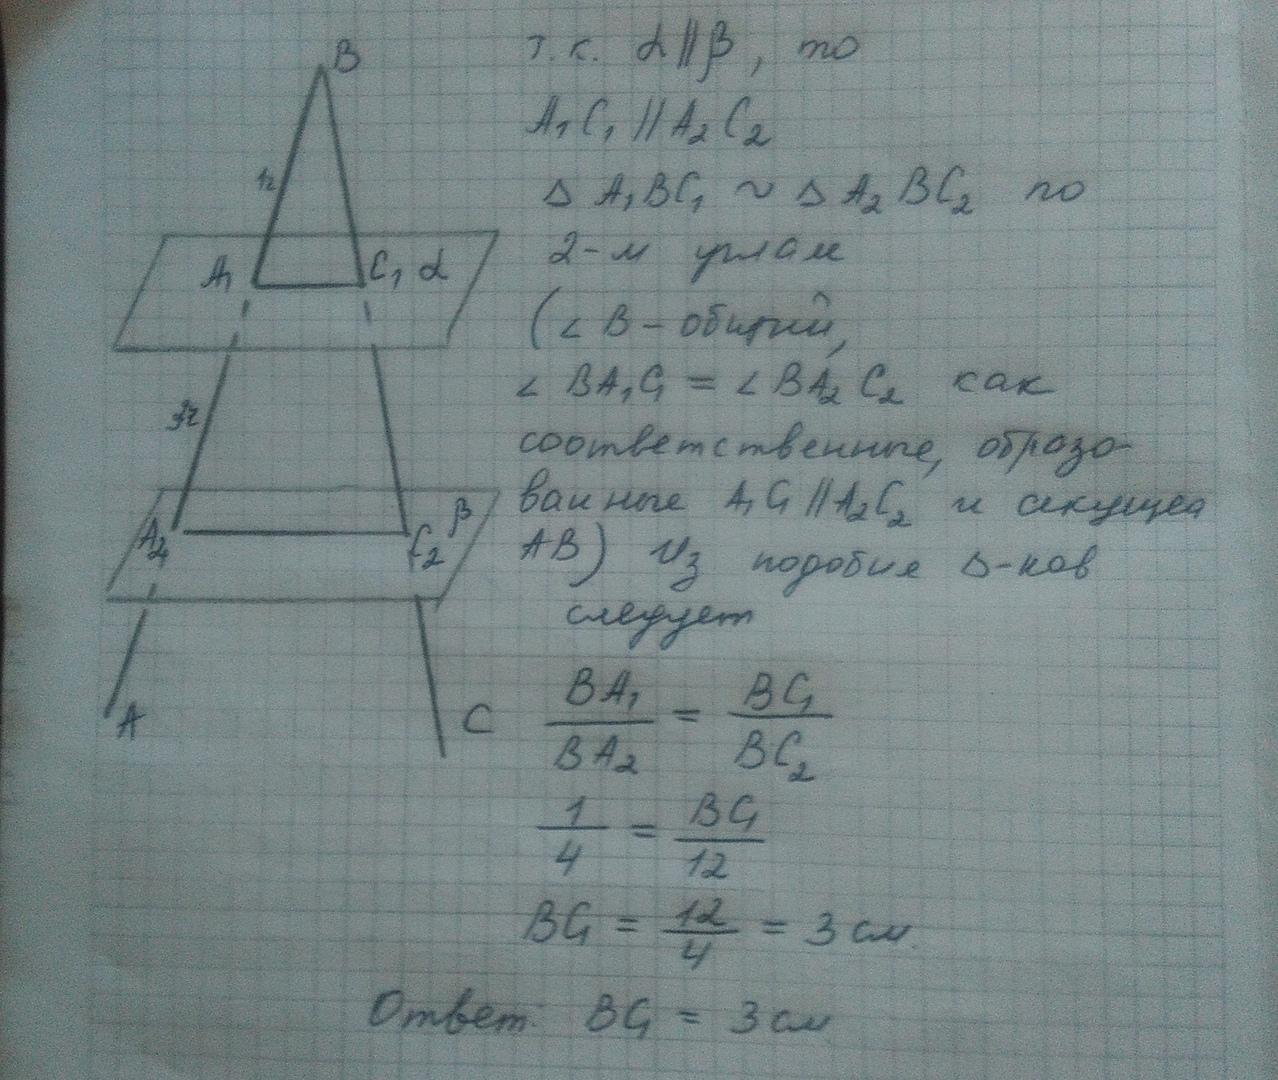 B
т.к. α∥β, то
A₁C₁∥A₂C₂
Δ A₁BC₁ ~ Δ A₂BC₂ по
2-м углам
(∠B - общий,
∠BA₁C₁ = ∠BA₂C₂ как
соответственные, образо-
ванные A₁C₁∥A₂C₂ и секущей
AB) Из подобия Δ-ков
следует
BA₁/BA₂ = BC₁/BC₂
1/4 = BC₁/12
BC₁ = 12/4 = 3 см.
Ответ: BC₁ = 3 см
A₁
C₁ α
A₂
C₂
β
A
C